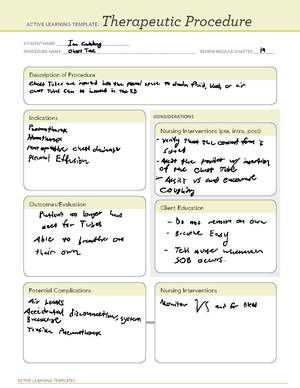 ACTIVE LEARNING TEMPLATE: Therapeutic Procedure
STUDENT NAME
PROCEDURE NAME Chest Tube
REVIEW MODULE CHAPTER 19
Description of Procedure
Chest Tubes are inserted into the pleural space to drain fluid, blood, or air
Chest Tube can be inserted in the ED
Indications
Pneumothorax
Hemothorax
Post operative chest drainage
Pleural Effusion
CONSIDERATIONS
Nursing Interventions (pre, intra, post)
- Verify that the consent form is
signed
- Assist the provider w/ insertion
of the chest tube
- Assess VS and encourage
Coughing
Outcomes/Evaluation
Patient no longer has
need for Tubes
Able to breathe on
their own
Client Education
- Do not remove on own
- Breathe Easy
- Tell nurse whenever
SOB occurs.
Potential Complications
Air Leaks
Accidental disconnection, system
Breakage
Tension Pneumothorax
Nursing Interventions
Monitor VS and for Bleed
ACTIVE LEARNING TEMPLATES